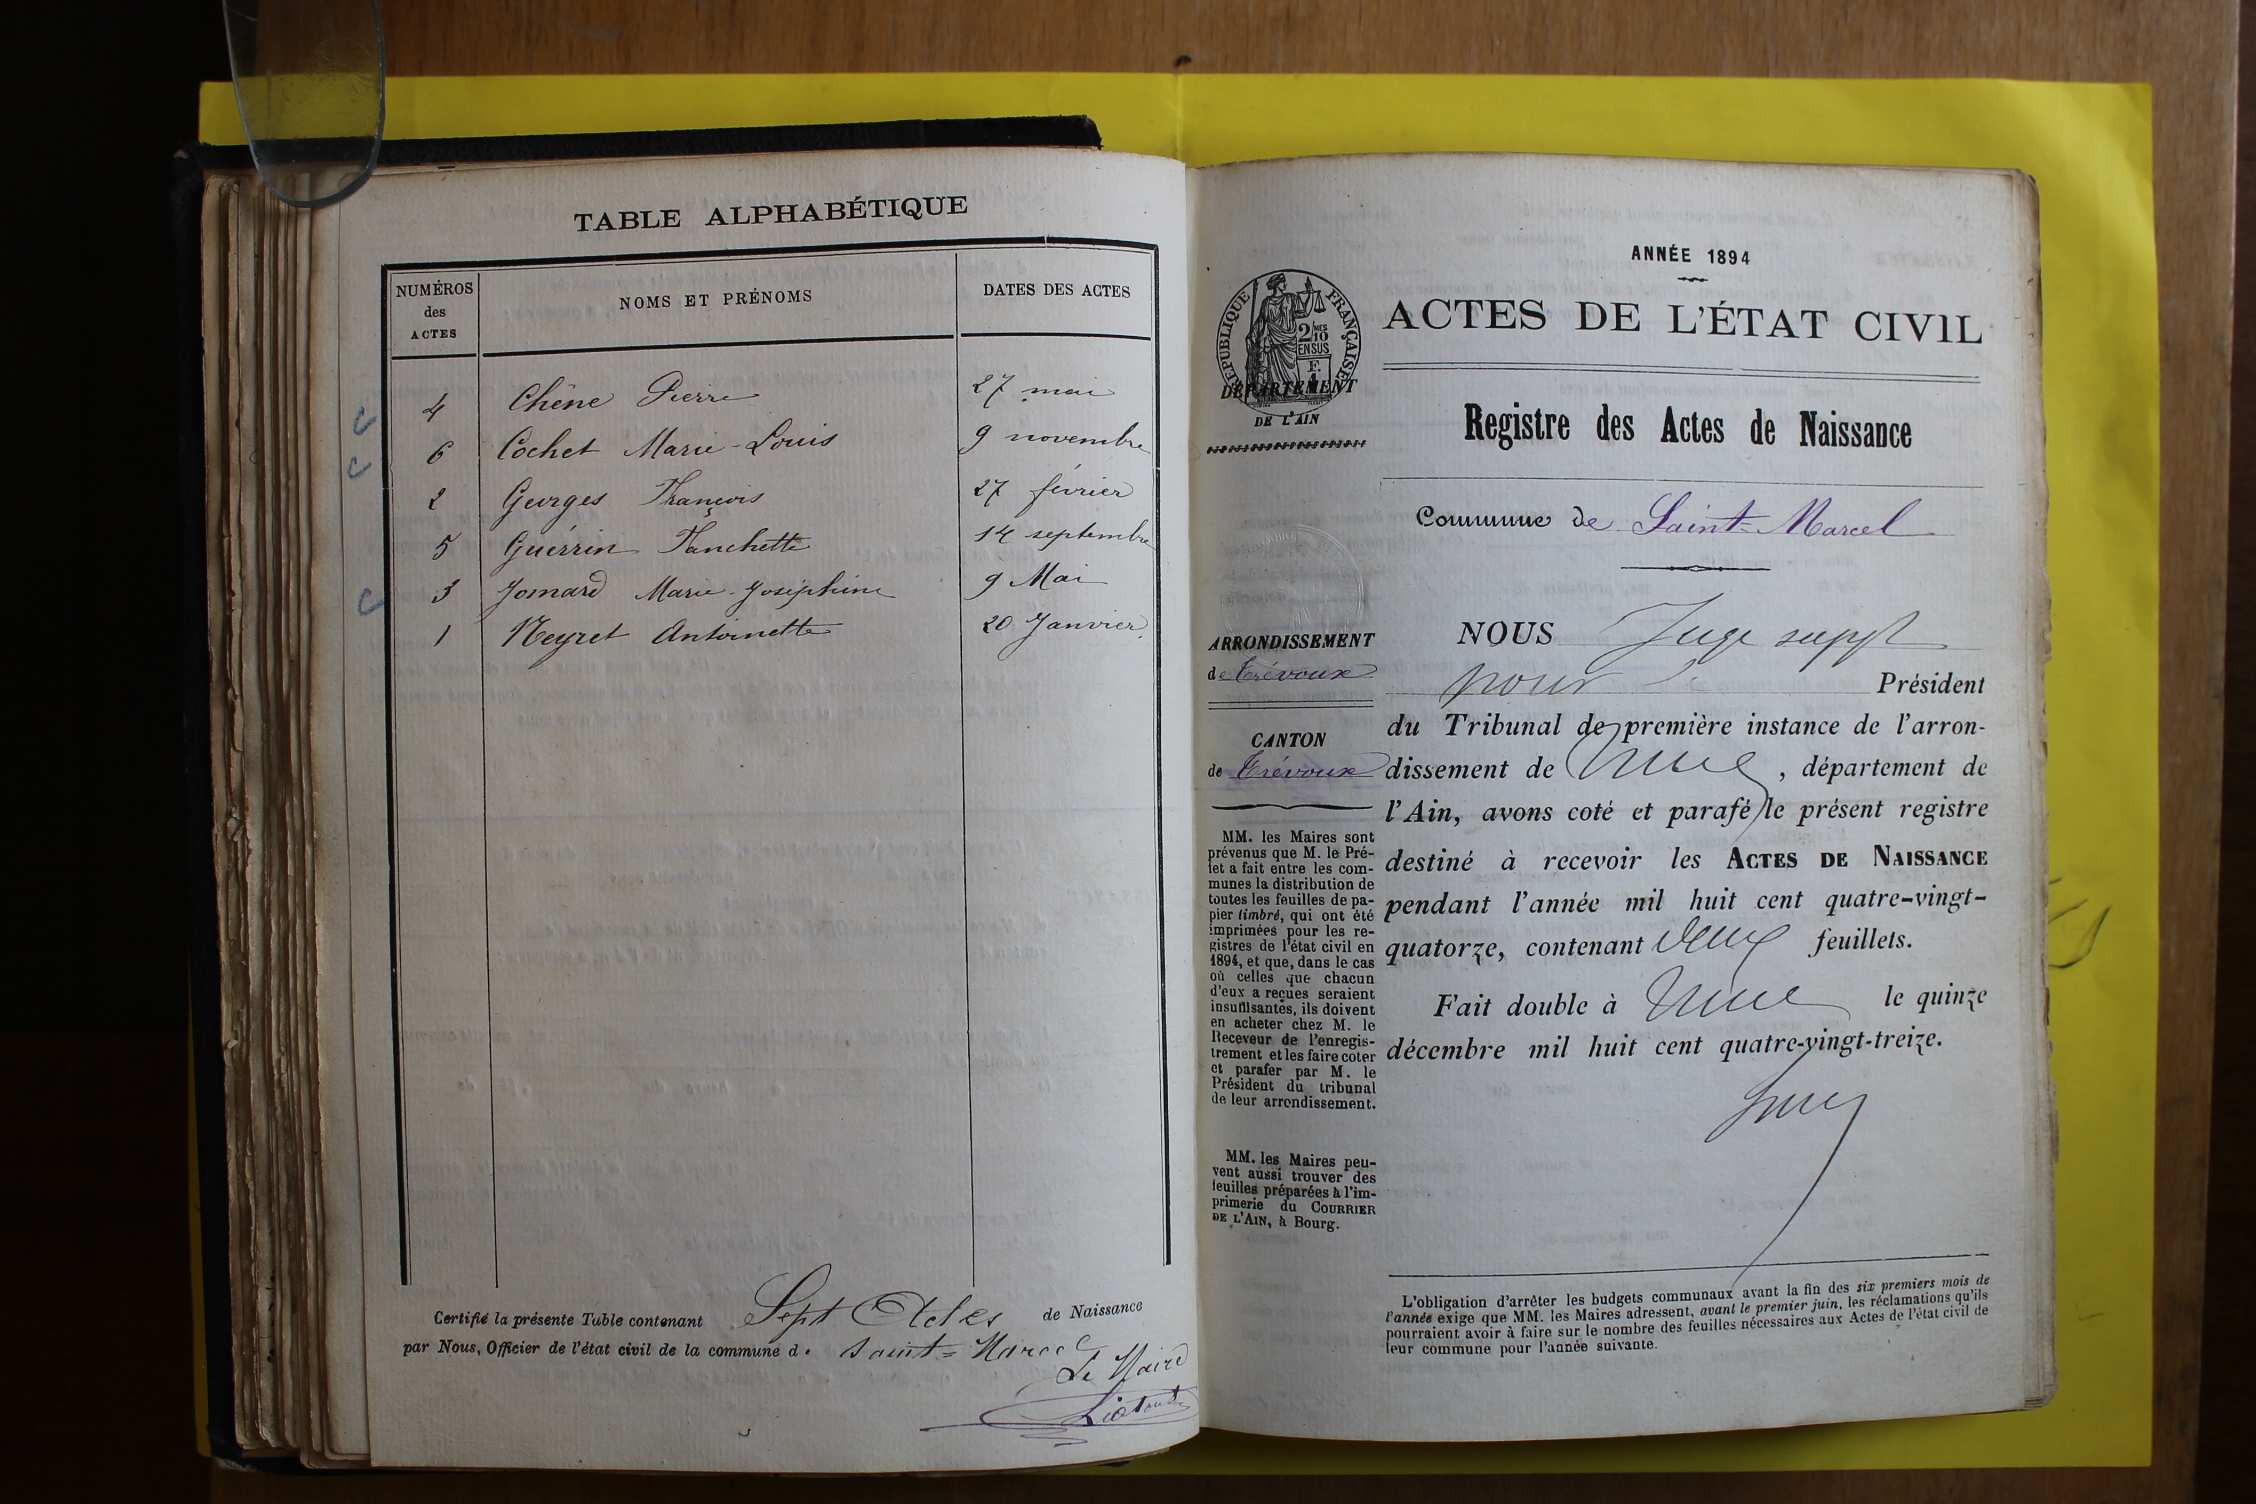 TABLE ALPHABÉTIQUE
NUMÉROS
des
ACTES
NOMS ET PRÉNOMS
DATES DES ACTES
4 Chêne Pierre 27 mai
6 Cochet Marie-Louis 9 novembre
2 Georges François 27 février
5 Guérrin Fanchette 14 septembre
3 Jomard Marie-Joséphine 9 Mai
1 Neyret Antoinette 20 Janvier
Certifié la présente Table contenant Sept Actes de Naissance
par Nous, Officier de l'état civil de la commune de Saint-Marcel
Le Maire
RÉPUBLIQUE FRANÇAISE
2/10 MES
EN SUS
DÉPARTEMENT
DE L'AIN
ARRONDISSEMENT
de Trévoux
CANTON
de Trévoux
MM. les Maires sont
prévenus que M. le Pré-
fet a fait entre les com-
munes la distribution de
toutes les feuilles de pa-
pier timbré, qui ont été
imprimées pour les re-
gistres de l'état civil en
1894, et que, dans le cas
où celles que chacun
d'eux a reçues seraient
insuffisantes, ils doivent
en acheter chez M. le
Receveur de l'enregis-
trement et les faire coter
et parafer par M. le
Président du tribunal
de leur arrondissement.
MM. les Maires peu-
vent aussi trouver des
feuilles préparées à l'im-
primerie du COURRIER
DE L'AIN, à Bourg.
ANNÉE 1894
ACTES DE L'ÉTAT CIVIL
Registre des Actes de Naissance
Commune de Saint-Marcel
NOUS Juge suppt
pour le Président
du Tribunal de première instance de l'arron-
dissement de , département de
l'Ain, avons coté et parafé le présent registre
destiné à recevoir les ACTES DE NAISSANCE
pendant l'année mil huit cent quatre-vingt-
quatorze, contenant deux feuillets.
Fait double à le quinze
décembre mil huit cent quatre-vingt-treize.
L'obligation d'arrêter les budgets communaux avant la fin des six premiers mois de
l'année exige que MM. les Maires adressent, avant le premier juin, les réclamations qu'ils
pourraient avoir à faire sur le nombre des feuilles nécessaires aux Actes de l'état civil de
leur commune pour l'année suivante.